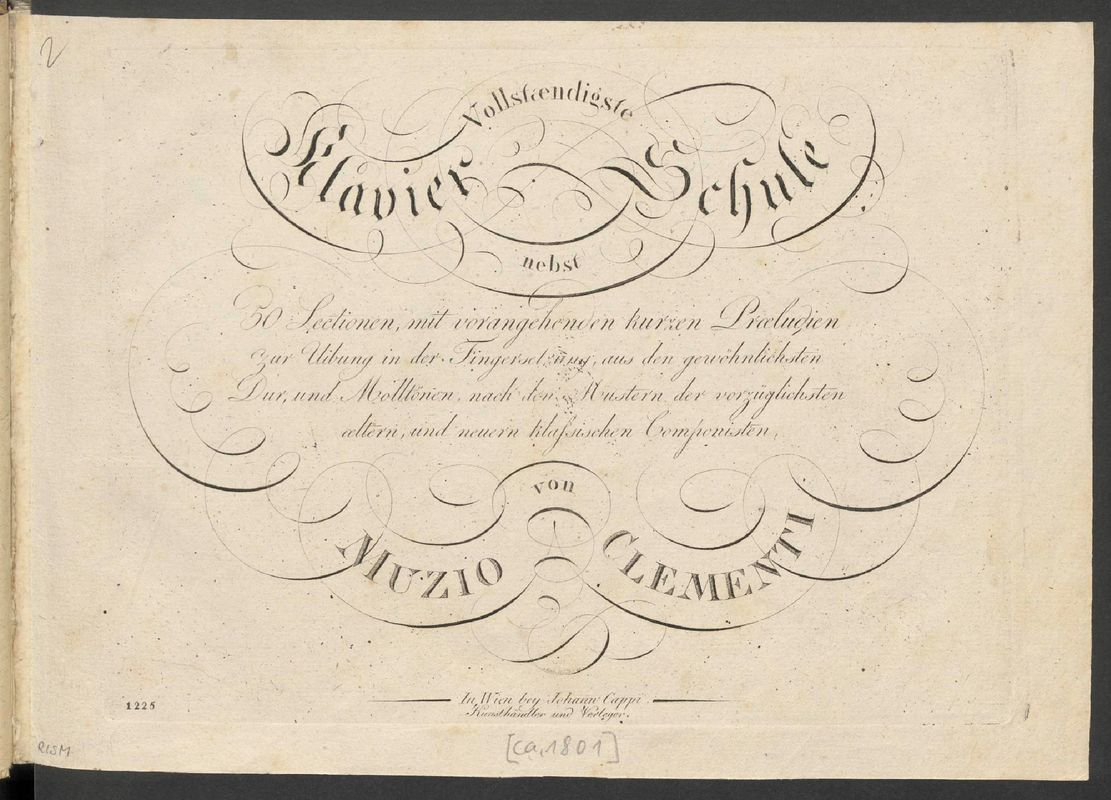 2
Vollstændigste
Klavier Schule
nebst
50 Lectionen, mit vorangehenden kurzen Præludien
zur Uibung in der Fingersetzung, aus den gewöhnlichsten
Dur, und Molltönen, nach den Mustern der vorzüglichsten
æltern, und neuern klaſsischen Componisten,
von
MUZIO CLEMENTI
In Wien bey Johann Cappi
Kunsthändler und Verleger.
1225
[ca. 1801]
RISM